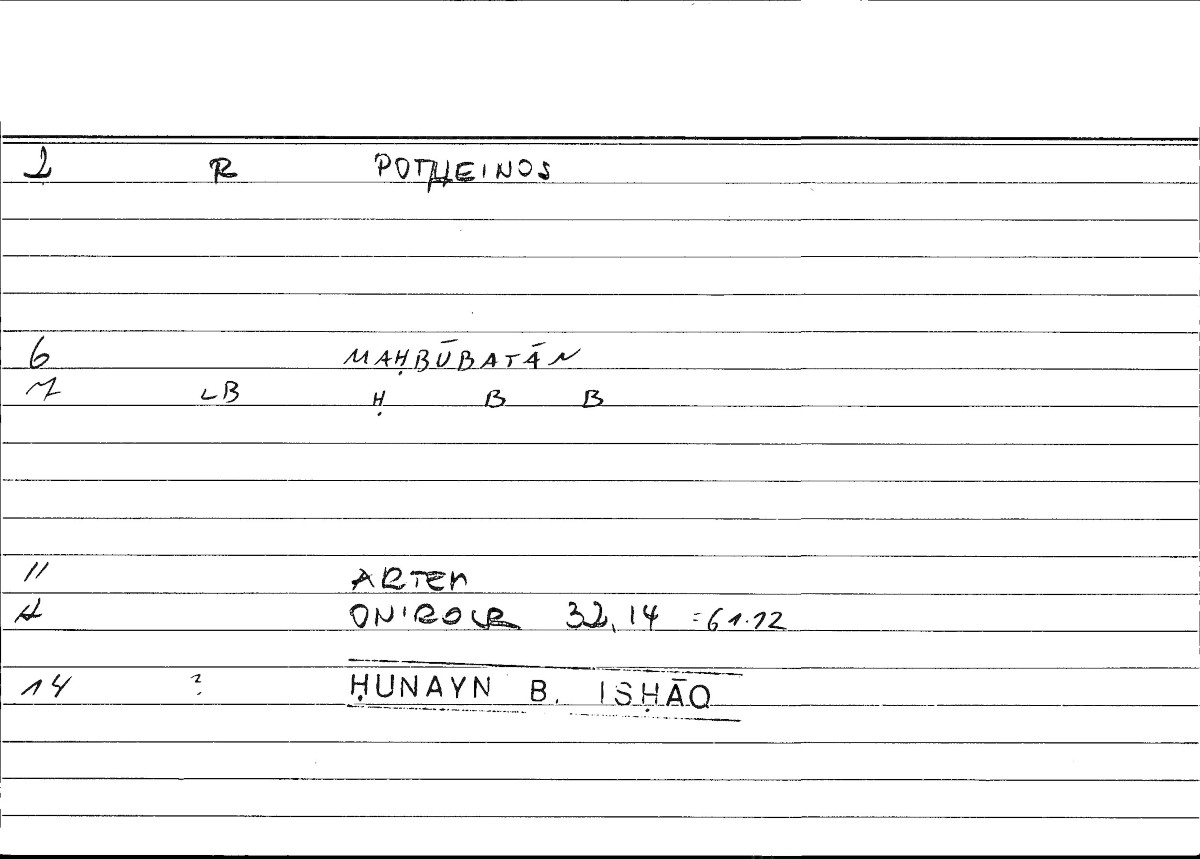 2 R POTHEINOS
6 MAḤBŪBATĀN
7 LB Ḥ B B
11 ARTEM
ONIROCR 32,14 =61.12
14 ? ḤUNAYN B. ISḤĀQ